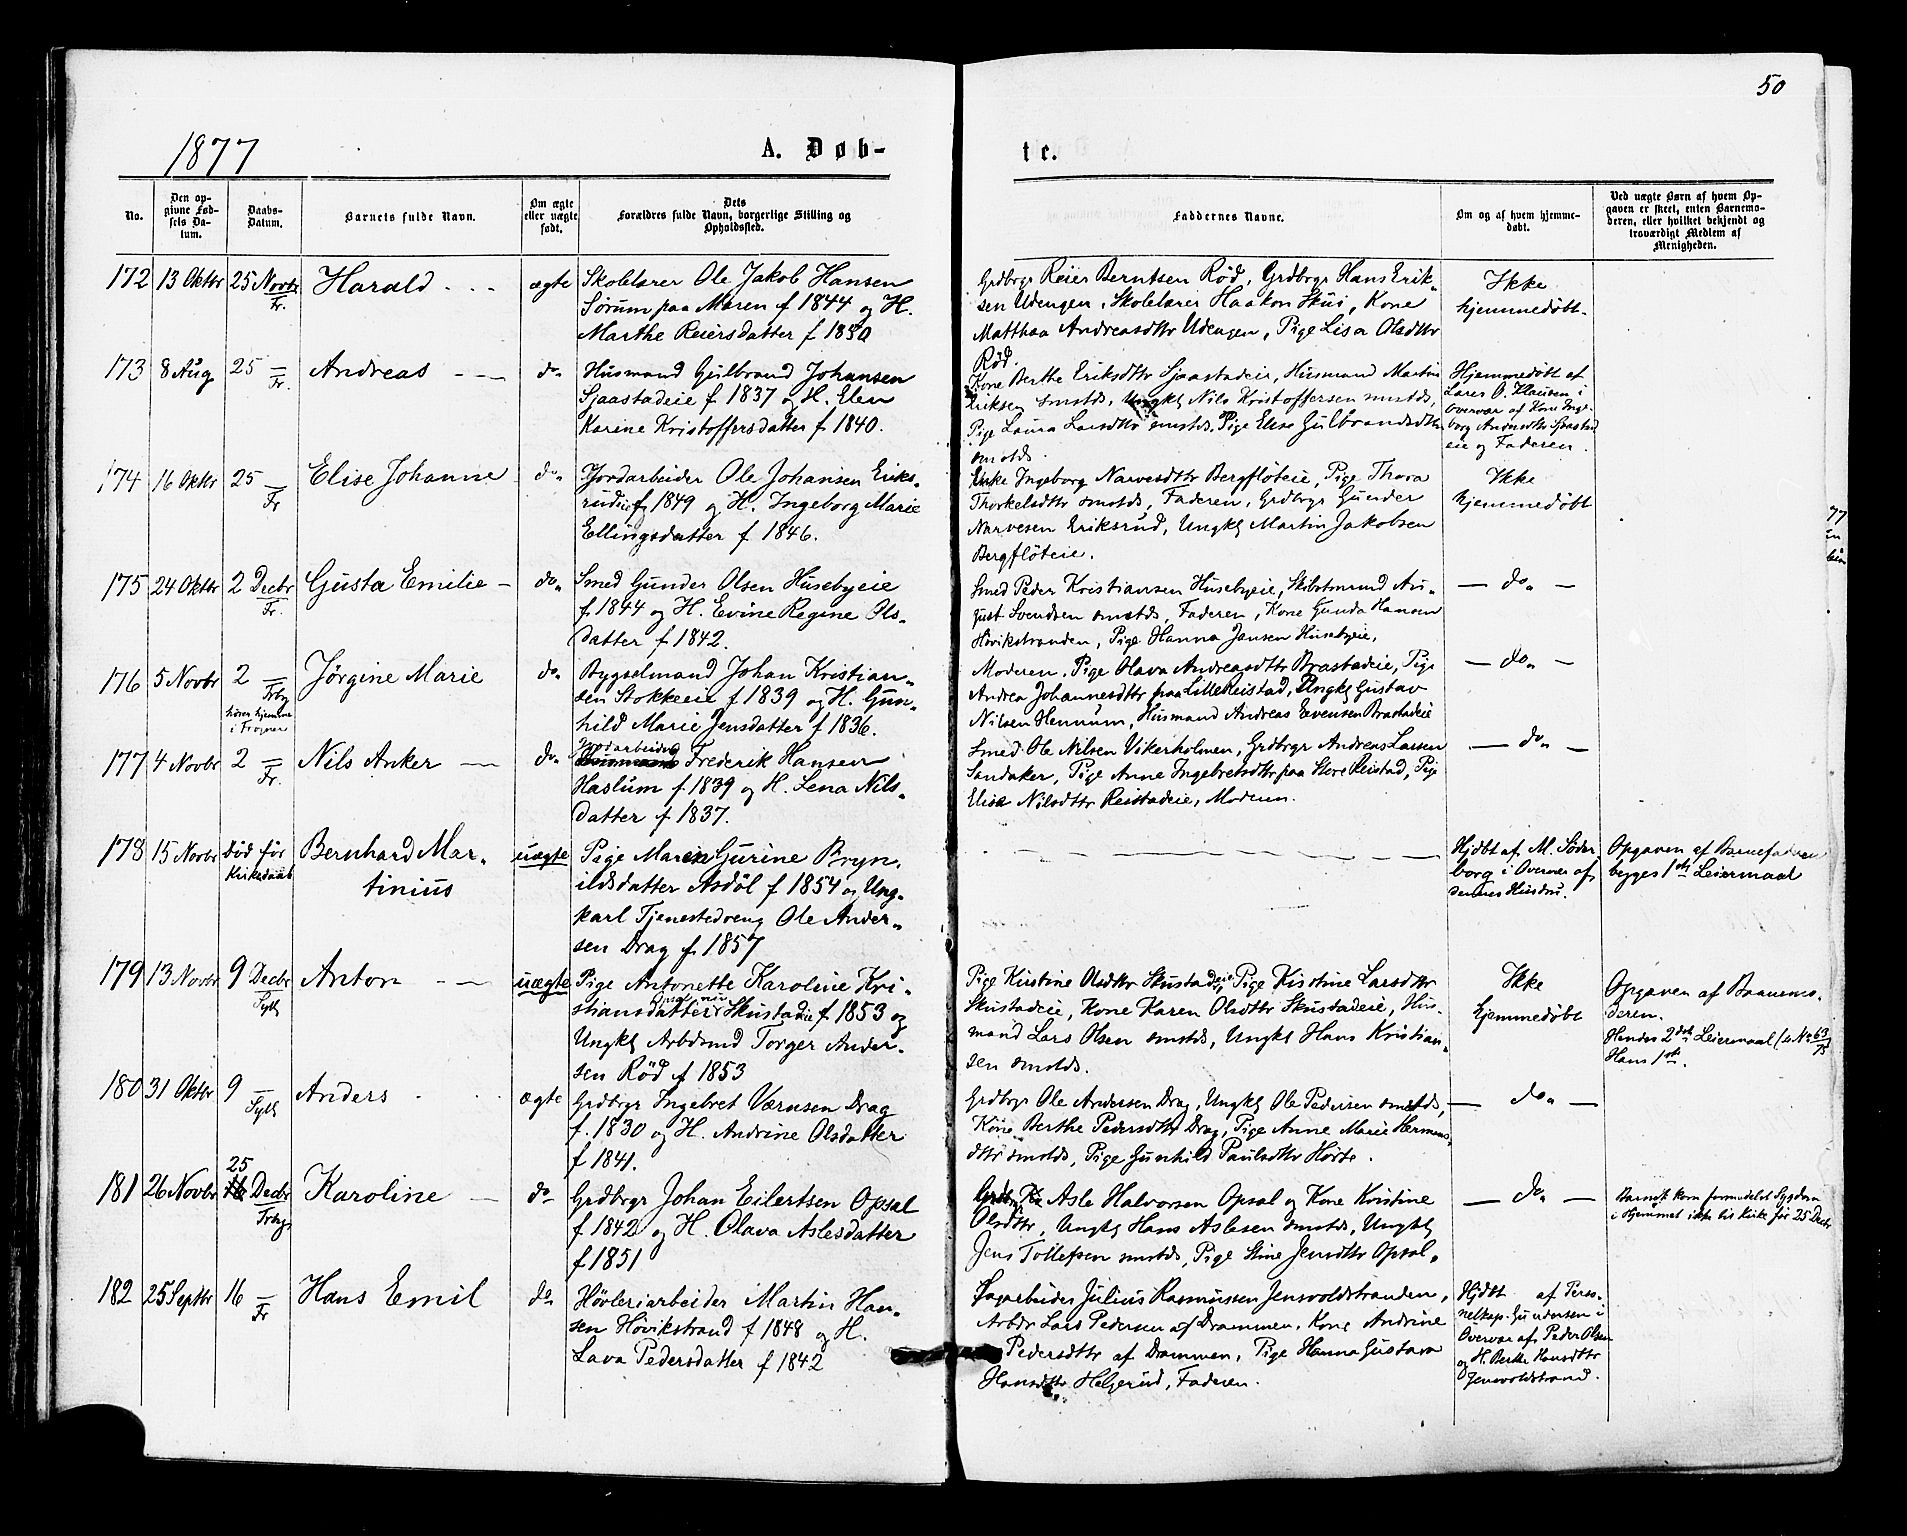 50
1877
A. Døb-
te.
No.
Den op-
givne Fød-
sels Da-
tum.
Daabs-
Datum.
Barnets fulde Navn.
Om ægte
eller uægte
født.
Dets
Forældres fulde Navn, borgerlige Stilling og
Opholdssted.
Faddernes Navne.
Om og af hvem hjemme-
døbt.
Ved uægte Børn af hvem Op-
gaven er skeet, enten Barnemo-
deren, eller hvilket bekjendt og
troværdigt Medlem af
Menigheden.
172 13 Oktbr 25 Novbr
Fr.
Harald
ægte
Skolelærer Ole Jakob Hansen
Sørum paa Maren f 1844 og H.
Marthe Reiersdatter f 1850
Grdbrgr Reier Berntsen Rød, Grdbrgr Hans Erik-
sen Udengen, Skolelærer Haakon Skui, Kone
Matthea Andreasdttr Udengen, Pige Lisa Olsdttr
Rød.
Ikke
hjemmedøbt.
173 8 Aug 25 —
Fr.
Andreas
do
Husmand Gulbrand Johansen
Sjaastadeie f 1837 og H. Elen
Karine Kristoffersdatter f 1840.
Kone Berthe Eriksdttr Sjaastadeie, Husmand Martin
Eriksen smstds, Ungkl Nils Kristoffersen smstds,
Pige Laura Larsdttr smstds, Pige Elise Gulbrandsdttr
smstds.
Hjemmedøbt af
Lars O. Klausen i
Overvær af Kone Inge-
borg Andersdttr Sjaastad
eie og Faderen.
174 16 Oktbr 25 —
Fr
Elise Johanne
do
Jordarbeider Ole Johansen Eriks-
rudeie f 1849 og H. Ingeborg Marie
Ellingsdatter f 1846.
Enke Ingeborg Narvesdttr Bergfløteie, Pige Thora
Thorkelsdttr smstds, Faderen, Grdbrgr Gunder
Narvesen Eriksrud, Ungkl Martin Jakobsen
Bergfløteie.
Ikke
hjemmedøbt
175 24 Oktbr 2 Decbr
Fr.
Gusta Emilie
do
Smed Gunder Olsen Husebyeie
f. 1844 og H. Evine Regine Ols-
datter f 1842.
Smed Peder Kristiansen Husebyeie, Skibstmmd Au-
gust Svendsen smstds, Faderen, Kone Gunda Hansen
Hövikstranden, Pige Hanna Jensen Husebyeie,
— do —
176 5 Novbr 2 —
Frbg
hører hjemme
i Frogner
Jørgine Marie
do
Bygselmand Johan Kristian-
sen Stokkeeie f 1839 og H. Gun-
hild Marie Jensdatter f 1836.
Moderen, Pige Olava Andreasdttr Brastadeie, Pige
Andrea Johannesdttr paa Lille Reistad, Ungkl Gustav
Nilsen Hennum, Husmand Andreas Evensen Brastadeie
— do —
177 4 Novbr 2 —
Fr.
Nils Anker
do
Jordarbeider
Frederik Hansen
Haslum f. 1839 og H. Lena Nils-
datter f 1837.
Smed Ole Nilsen Vikerholmen, Grdbrgr Andreas Larsen
Sandaker, Pige Anne Ingebretsdttr paa Store Reistad, Pige
Elise Nilsdttr Reistadeie, Moderen.
— do —
178 15 Novbr Død før
Kirkedaab
Bernhard Mar-
tinius
uægte
Pige Maren Gurine Bryn-
ildsdatter Asdöl f 1854 og Ung-
karl Tjenestedreng Ole Ander-
sen Drag f 1857
Hjdbt af M. Söder
borg i Overvær af
dennes Hustru.
Opgaven af Barnefaderen
begges 1ste Leiermaal
179 13 Novbr 9 Decbr
Sylg
Anton
uægte
Pige Antonette Karoline Kri-
stiansdatter Skustadeie f 1853 og
Ungkl Arbdsmd Torger Ander-
sen Rød f 1853
Pige Kristine Olsdttr Skustadeie, Pige Kistine Larsdttr
Skustadeie, Kone Karen Olsdttr Skustadeie, Hus-
mand Lars Olsen smstds, Ungkl Hans Kristian-
sen smstds.
Ikke
hjemmedøbt
Opgaven af Barnemo-
deren.
Hendes 2det Leiermaal (s. No 63/75
Hans 1ste
180 31 Oktbr 9 —
Sylg
Anders
ægte
Grdbrgr Ingebret Værnsen Drag
f. 1830 og H. Andrine Olsdatter
f 1841.
Grdbrgr Ole Andersen Drag, Ungkl Ole Pedersen smstds,
Kone Berthe Pedersdttr Drag, Pige Anne Marie Hermans-
dttr smstds, Pige Gunhild Paulsdttr Hörte.
— do —
181 26 Novbr 25
16 Decbr
Frbg
Karoline
do
Grdbrgr Johan Eilertsen Opsal
f 1842 og H. Olava Aslesdatter
f 1851
Asle Halvorsen Opsal og Kone Kristine
Olsdttr, Ungkl Hans Aslesen smstds, Ungkl
Jens Tollefsen smstds, Pige Stine Jensdttr Opsal.
— do —
Barnet kom formedelst Sygdom
i Hjemmet ikke til Kirke før 25 Decbr
182 25 Septbr 16 —
Fr
Hans Emil
do
Høvleriarbeider Martin Han-
sen Hövikstrand f 1848 og H.
Lava Pedersdatter f 1842
Sagarbeider Julius Rasmussen Jensvoldstranden,
Arbdr Lars Pedersen af Drammen, Kone Andrine
Pedersdttr af Drammen, Pige Hanna Gustava
Hansdttr Helgerud, Faderen.
Hjdbt af Pers-
nelkap. Gundersen i
Overvær af Peder Olsen
og H. Berthe Hansdttr
Jensvoldstrand.